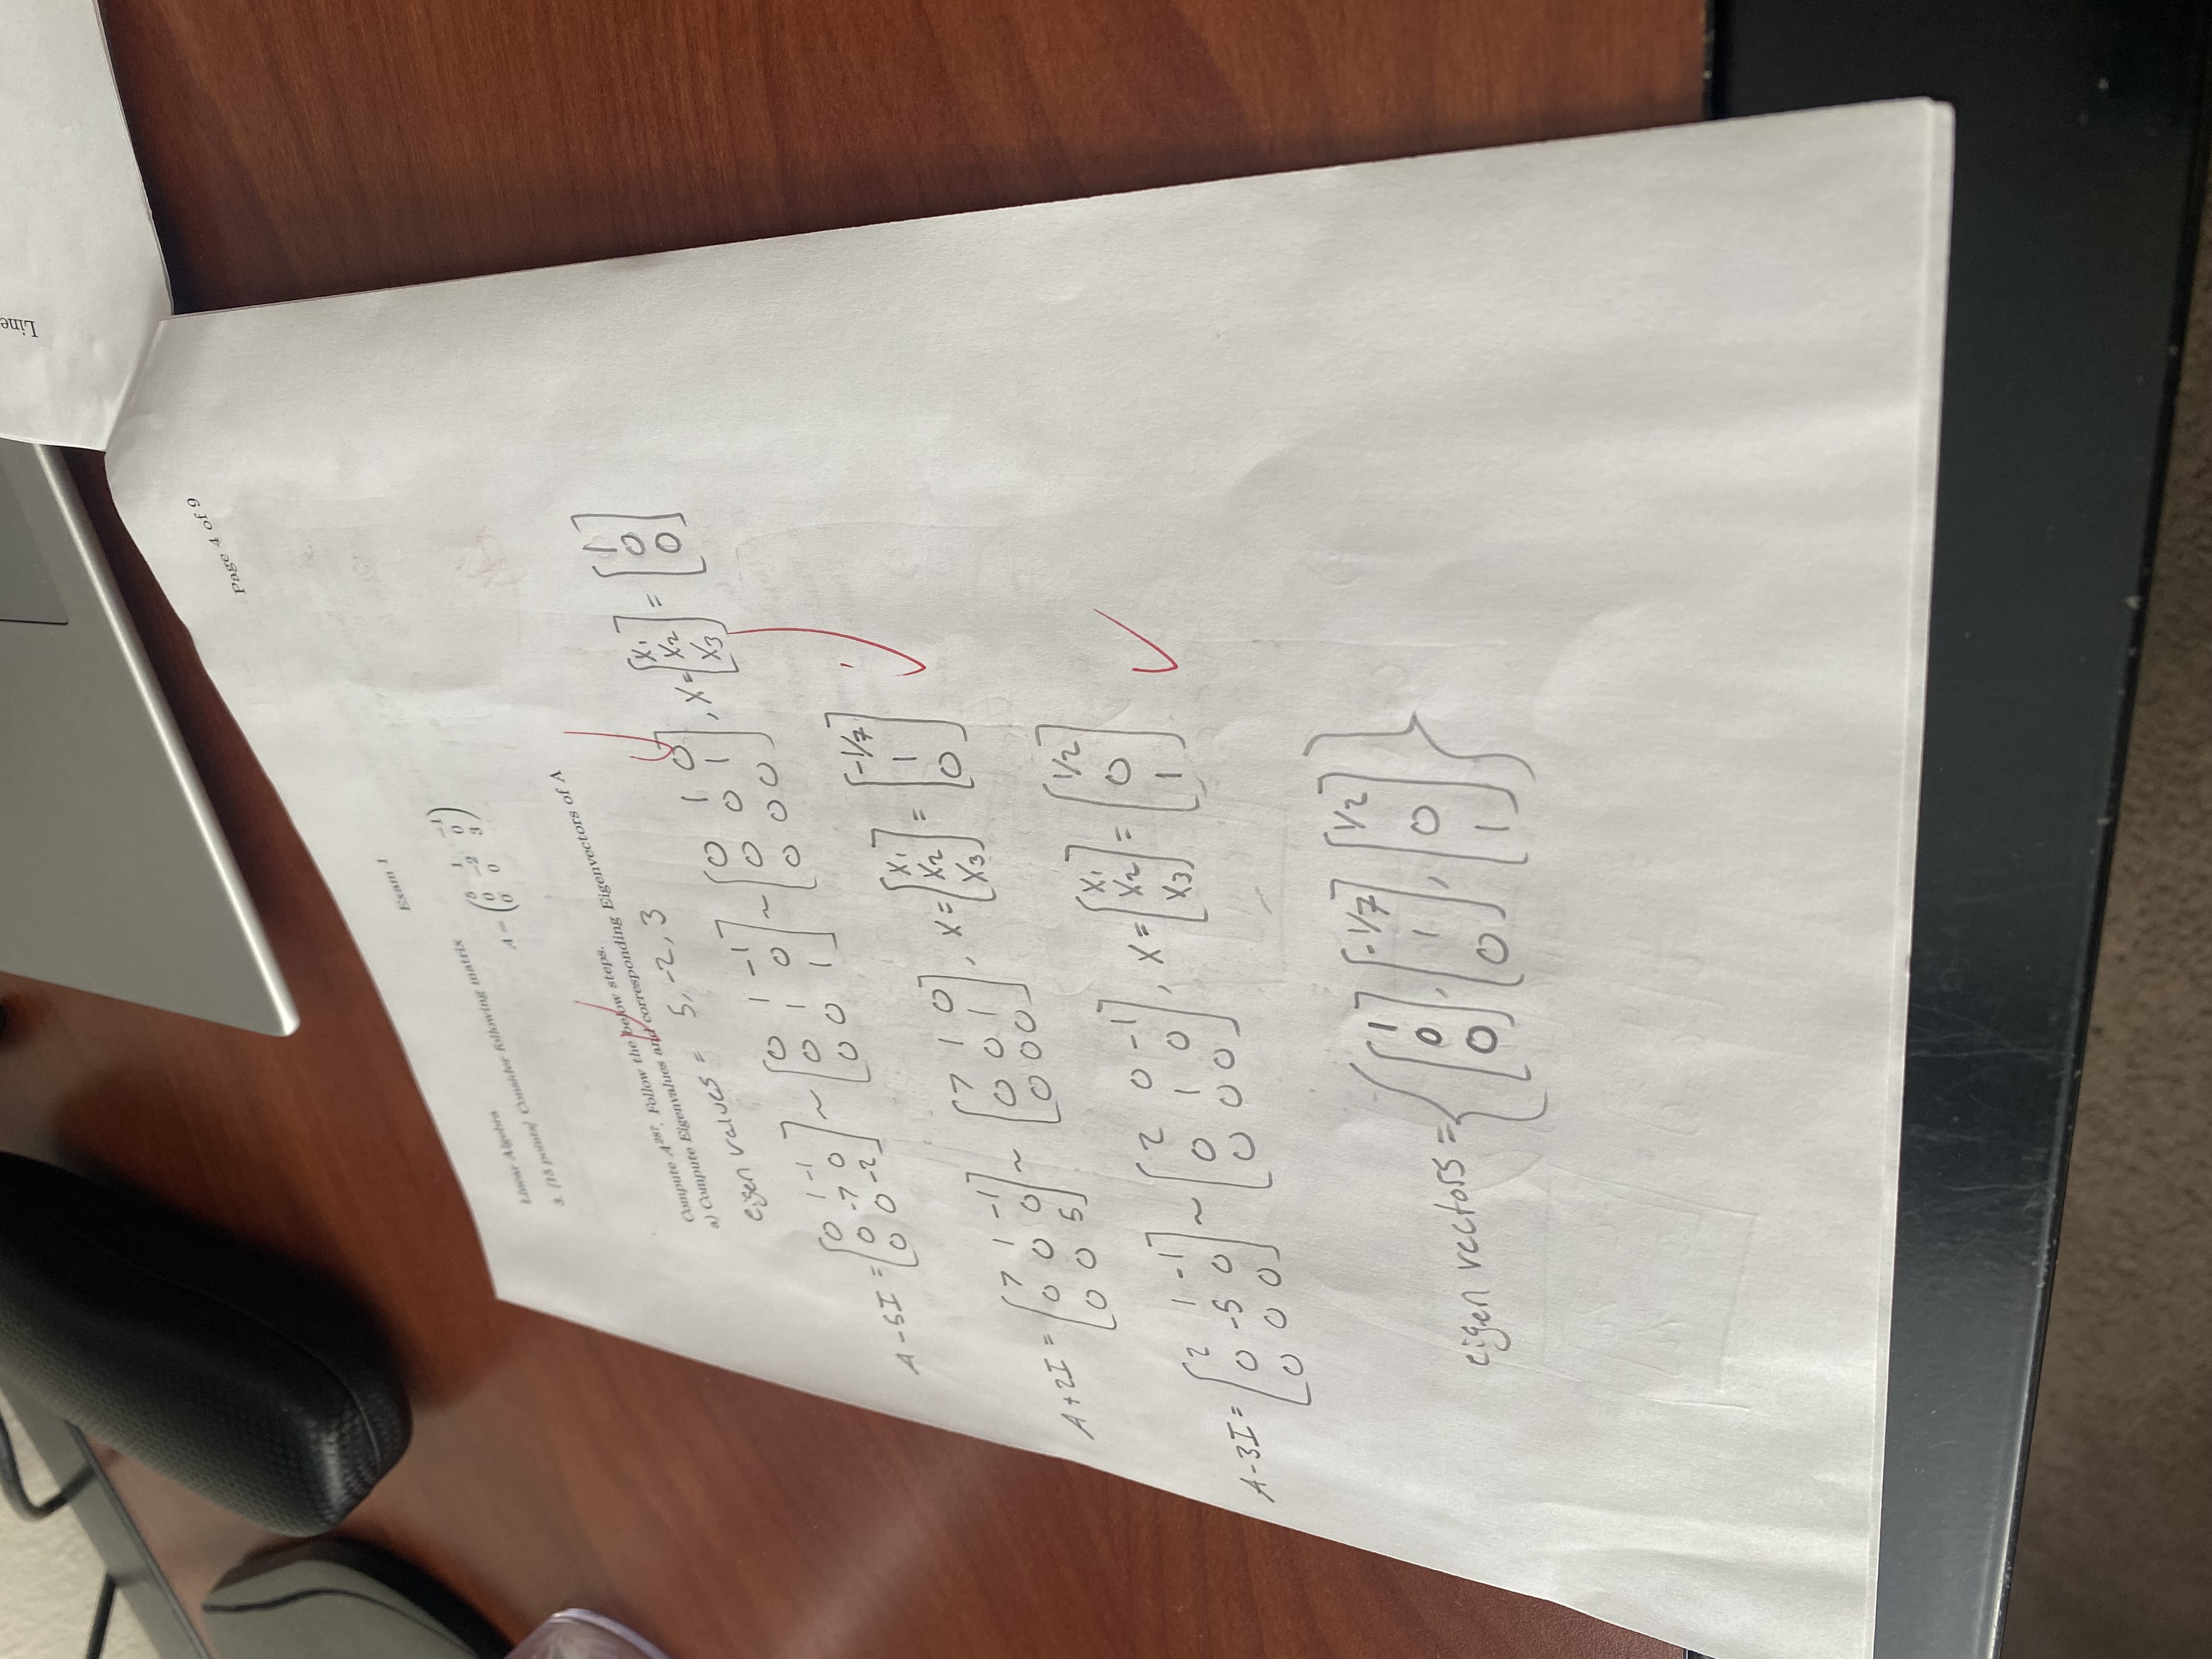 Line
Page 4 of 9
Linear Algebra Exam 1
3. [15 points] Consider following matrix
A = ( 5 1 -1
0 -2 0
0 0 3 )
Compute A^287. Follow the below steps.
a) Compute Eigenvalues and corresponding Eigenvectors of A
eigen values = 5, -2, 3
A-5I = [ 0 1 -1 ; 0 -7 0 ; 0 0 -2 ] ~ [ 0 1 -1 ; 0 1 0 ; 0 0 1 ] ~ [ 0 1 0 ; 0 0 1 ; 0 0 0 ] , X = [ X1 ; X2 ; X3 ] = [ 1 ; 0 ; 0 ]
A+2I = [ 7 1 -1 ; 0 0 0 ; 0 0 5 ] ~ [ 7 1 0 ; 0 0 1 ; 0 0 0 ] , X = [ X1 ; X2 ; X3 ] = [ -1/7 ; 1 ; 0 ]
A-3I = [ 2 1 -1 ; 0 -5 0 ; 0 0 0 ] ~ [ 2 0 -1 ; 0 1 0 ; 0 0 0 ] , X = [ X1 ; X2 ; X3 ] = [ 1/2 ; 0 ; 1 ]
eigen vectors = { [ 1 ; 0 ; 0 ] , [ -1/7 ; 1 ; 0 ] , [ 1/2 ; 0 ; 1 ] }